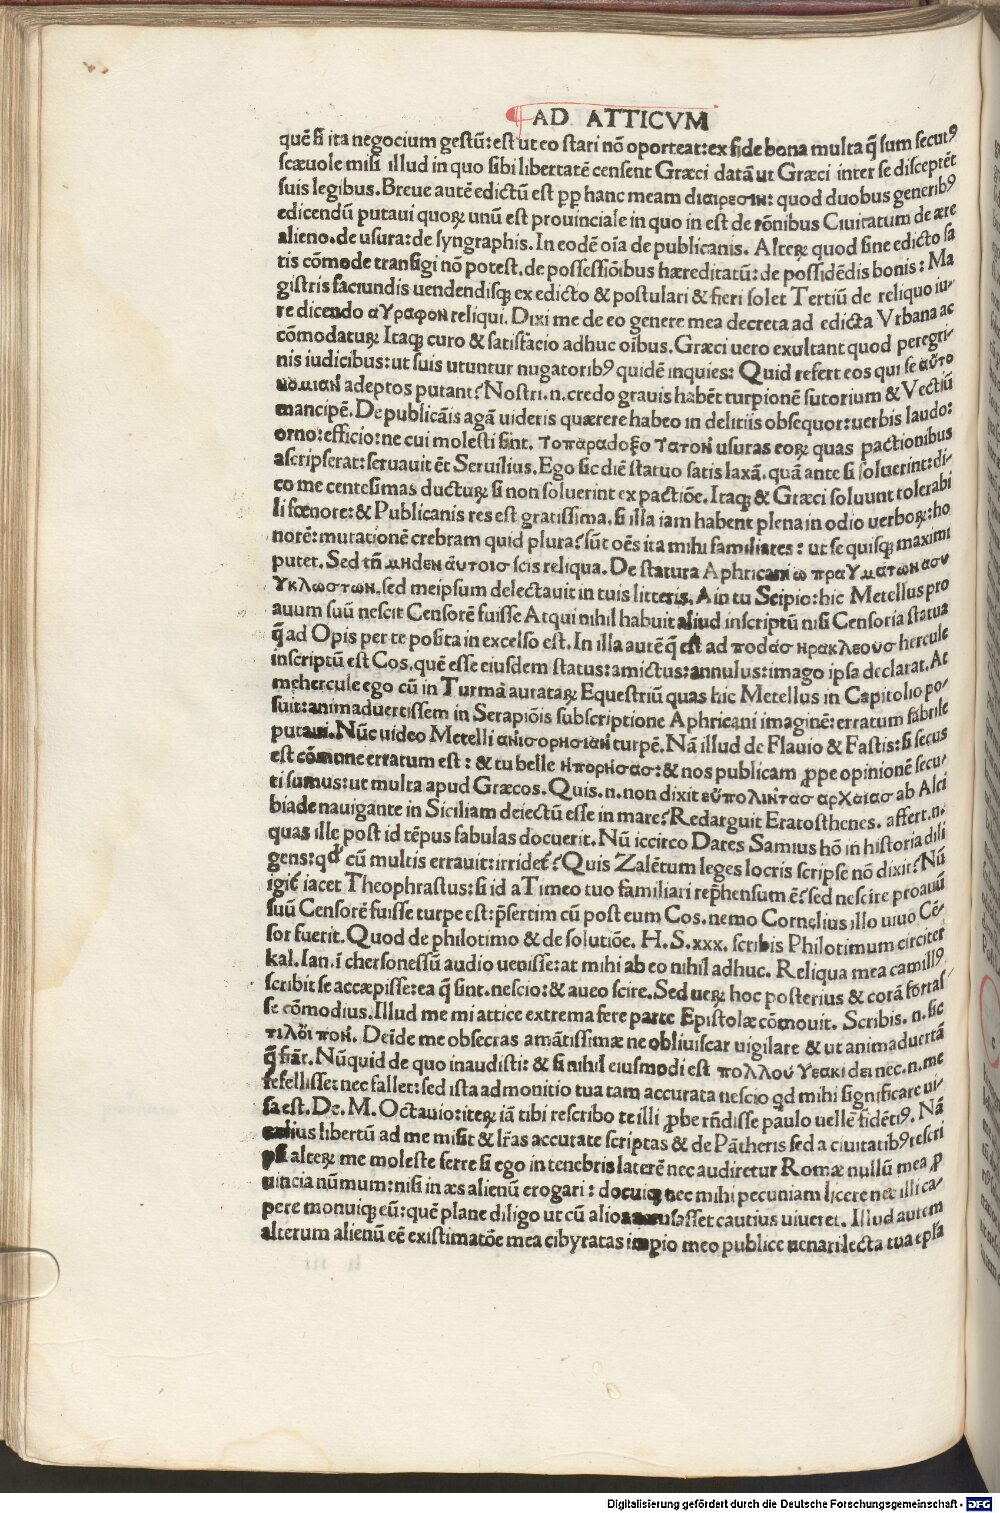 AD ATTICVM
quē si ita negocium gestū: est ut eo stari nō oporteat: ex fide bona multa q̄ sum secutꝰ
scæuole misi illud in quo sibi libertatē censent Græci datā ut Græci inter se disceptēt
suis legibus. Breue autē edictū est ꝓp hanc meam διαιρεσιν: quod duobus generibꝰ
edicendū putaui quoꝝ unū est prouinciale in quo in est de rōnibus Ciuitatum de ære
alieno. de usura: de syngraphis. In eodē oīa de publicanis. Alteꝝ quod sine edicto sa
tis cōmode transigi nō potest. de possessiōibus hæreditatū: de possidēdis bonis: Ma
gistris faciundis uendendisqꝫ ex edicto & postulari & fieri solet Tertiū de reliquo iu-
re dicendo αγραφον reliqui. Dixi me de eo genere mea decreta ad edicta Vrbana ac
cōmodatuꝝ Itaqꝫ curo & satisfacio adhuc oībus. Græci uero exultant quod peregri-
nis iudicibus: ut suis utuntur nugatoribꝰ quidē inquies: Quid refert eos qui se αὐτο
νομιαν adeptos putant? Nostri. n. credo grauis habēt turpionē sutorium & Vectiū
mancipē. De publicāis agā uideris quærere habeo in delitiis obsequor: uerbis laudo:
orno: efficio: ne cui molesti sint. τοπαραδοξο τατον usuras eoꝝ quas pactionibus
ascripserat: seruauit ēt Seruilius. Ego sic diē statuo satis laxā. quā ante si soluerint: di-
co me centesimas ductuꝝ si non soluerint ex pactiōe. Itaqꝫ & Græci soluunt tolerabi
li fœnore: & Publicanis res est gratissima. si illa iam habent plena in odio uerboꝝ: ho
norē: mutationē crebram quid plura? sūt oēs ita mihi familiares: ut se quisqꝫ maximi
putet. Sed tn̄ μηδεν ἀυτοισ scis reliqua. De statura Aphricani ω πραγματωνασυ
γκλωστων. sed meipsum delectauit in tuis litteris. Ain tu Scipio: hic Metellus pro
auum suū nescit Censorē fuisse Atqui nihil habuit aliud inscriptū nisi Censoria statua
q̄ ad Opis per te posita in excelso est. In illa autē q̄ est ad ποδασ ηρακλεουσ hercule
inscriptū est Cos. quē esse eiusdem status: amictus: annulus: imago ipsa declarat. At
mehercule ego cū in Turma aurataꝝ Equestriū quas hic Metellus in Capitolio po-
suit: animaduertissem in Serapiōis subscriptione Aphricani imaginē: erratum fabrile
putaui. Nūc uideo Metelli ανισορησιαν turpē. Nā illud de Flauio & Fastis: si secus
est cōmune erratum est: & tu belle ηπορησασ: & nos publicam ꝓpe opinionē secu-
ti sumus: ut multa apud Græcos. Quis. n. non dixit εὐπολιντασ αρχαιασ ab Alci
biade nauigante in Siciliam deiectū esse in mare? Redarguit Eratosthenes. affert. n.
quas ille post id tēpus fabulas docuerit. Nū iccirco Dares Samius hō in historia dili
gens: qđ cū multis errauit: irridet? Quis Zalētum leges locris scripse nō dixit? Nū
igit iacet Theophrastus: si id a Timeo tuo familiari rep̄hensum ē? sed nescire proauū
suū Censorē fuisse turpe est: p̄sertim cū post eum Cos. nemo Cornelius illo uiuo Cē-
sor fuerit. Quod de philotimo & de solutiōe. H. S. xxx. scribis Philotimum circiter
kal. Ian. ī chersonessū audio uenisse: at mihi ab eo nihil adhuc. Reliqua mea camillꝰ
scribit se accæpisse: ea q̄ sint. nescio: & aueo scire. Sed ueꝝ hoc posterius & corā fortas-
se cōmodius. Illud me mi attice extrema fere parte Epistolæ cōmouit. Scribis. n. sic
τιλὀι πον. Deīde me obsecras amātissimæ ne obliuiscar uigilare & ut animaduertā
q̄ fiāt. Nūquid de quo inaudisti: & si nihil eiusmodi est πολλου γεακι δει nec. n. me
fefellisse: nec fallet: sed ista admonitio tua tam accurata nescio qd mihi significare ui-
sa est. De. M. Octauio: iteꝝ iā tibi rescribo te illi ꝓbe rn̄disse pāulo uellē fidētiꝰ. Nā
cælius libertū ad me misit & lr̄as accurate scriptas & de Pātheris sed a ciuitatibꝰ rescri
psi alteꝝ me moleste ferre si ego in tenebris laterē nec audiretur Romæ nullū mea ꝓ
uincia nūmum: nisi in æs alienū erogari: docuiqꝫ nec mihi pecuniam licere nec illi ca-
pere monuiqꝫ eū: quē plane diligo ut cū alios accusasset cautius uiueret. Illud autem
alterum alienū eē existimatōe mea cibyratas impio meo publice uenari lecta tua epl̄a
Digitalisierung gefördert durch die Deutsche Forschungsgemeinschaft - DFG